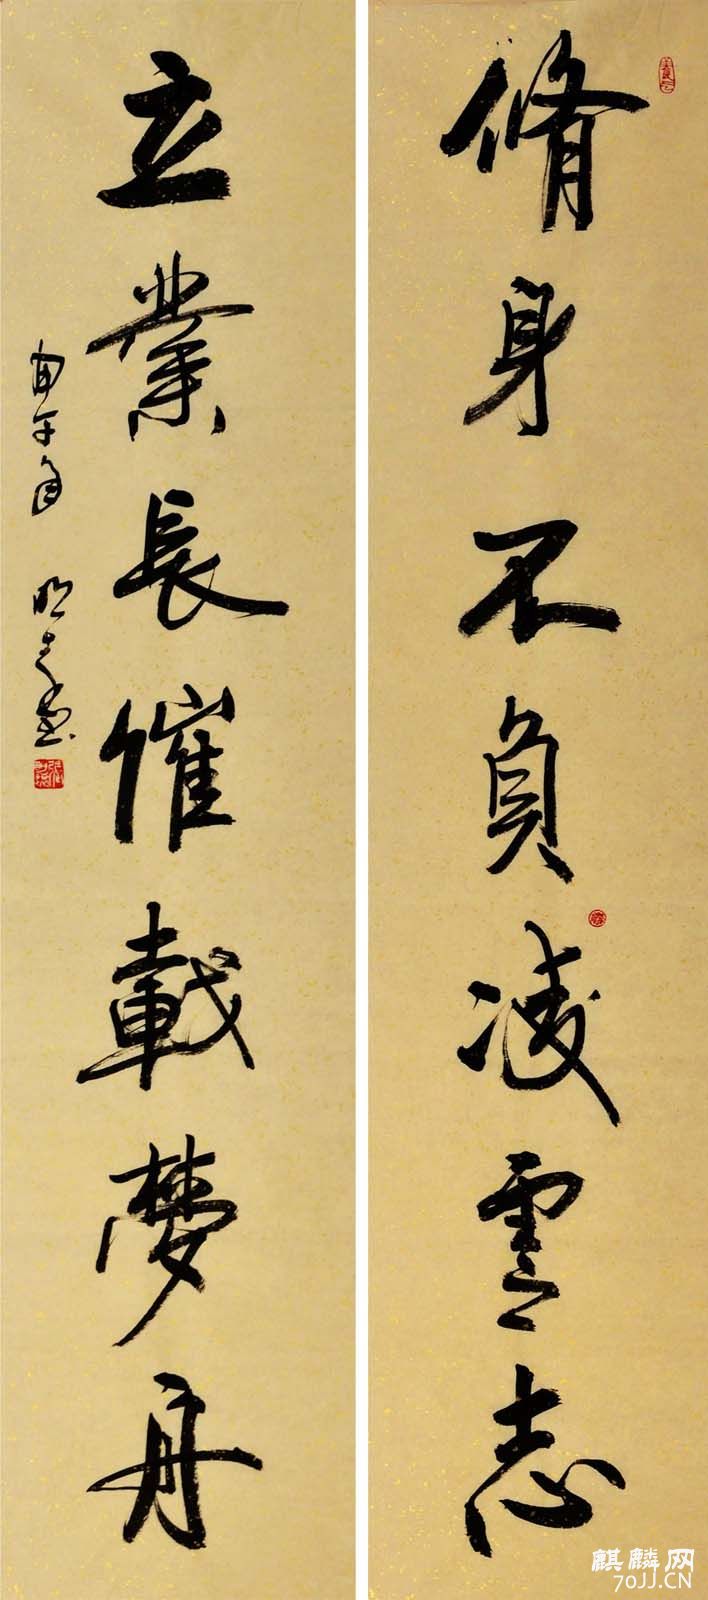 脩身不負凌雲志
立業長催載夢舟
麒麟网
70JJ.CN